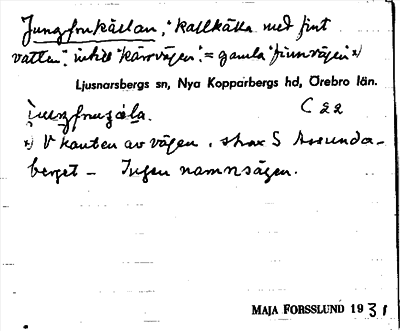 Jungfrukällan, "kallkälla med fint
vatten", intill "kärrvägen" = gamla "finnvägen" x)
Ljusnarsbergs sn, Nya Kopparbergs hd, Örebro län.
C 22
x) V kanten av vägen, strax S
berget – Ingen namnsägen.
MAJA FORSSLUND 1931